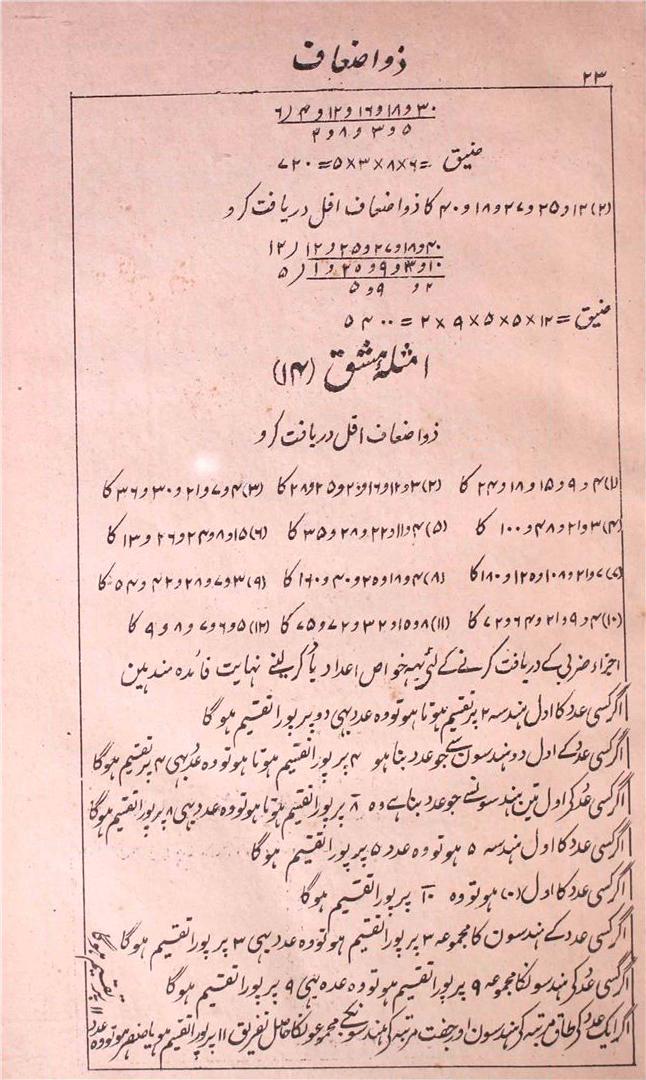 ذو اضعاف
۲۳
۶) ۴ و ۱۲ و ۱۶ و ۱۸ و ۳۰
۲ و ۸ و ۳ و ۵
= ۶×۸×۳×۵ = ۷۲۰
(۲) ۱۲ و ۲۵ و ۲۷ و ۱۸ و ۴۰ کا ذو اضعاف اقل دریافت کرو
۱۲) ۱۲ و ۲۵ و ۲۷ و ۱۸ و ۴۰
۵) ۱ و ۲۵ و ۹ و ۳ و ۱۰
۵ و ۹ و ۲
= ۱۲×۵×۵×۹×۲ = ۵۴۰۰
امثلۂ مشق (۱۴)
ذو اضعاف اقل دریافت کرو
(۱) ۴ و ۹ و ۱۵ و ۱۸ و ۲۴ کا (۲) ۳ و ۱۲ و ۱۶ و ۲۰ و ۲۵ و ۲۸ کا (۳) ۴ و ۷ و ۲۱ و ۳۰ و ۳۶ کا
(۴) ۳ و ۲۱ و ۴۸ و ۱۰۰ کا (۵) ۴ و ۱۱ و ۲۲ و ۲۸ و ۳۵ کا (۶) ۱۵ و ۸ و ۲۴ و ۲۶ و ۱۳ کا
(۷) ۷ و ۲۱ و ۱۰۸ و ۱۲۵ و ۱۸۰ کا (۸) ۴ و ۱۸ و ۲۵ و ۴۰ و ۱۶۰ کا (۹) ۳ و ۷ و ۲۸ و ۴۲ و ۵۴ کا
(۱۰) ۴ و ۹ و ۲۱ و ۶۴ و ۷۲ کا (۱۱) ۸ و ۱۵ و ۳۲ و ۷۲ و ۷۵ کا (۱۲) ۵ و ۶ و ۷ و ۸ و ۹ کا
اجزاء ضربی کے دریافت کرنے کے لئے یہہ خواص اعداد یاد کرلینے نہایت فائدہ مند ہین
اگر کسی عدد کا اول ہندسہ ۲ پر تقسیم ہوتا ہو تو وہ عدد بہی دو پر پورا تقسیم ہوگا
اگر کسی عدد کے اول دو ہندسون سے جو عدد بنا ہو ۴ پر پورا تقسیم ہوتا ہو تو وہ عدد بہی ۴ پر تقسیم ہوگا
اگر کسی عدد کی اول تین ہندسونسے جو عدد بنا ہے وہ ۸ پر پورا تقسیم ہوتا ہو تو وہ عدد بہی ۸ پر پورا تقسیم ہوگا
اگر کسی عدد کا اول ہندسہ ۵ ہو تو وہ عدد ۵ پر پورا تقسیم ہوگا
اگر کسی عدد کا اول (۰) ہو تو وہ ۱۰ پر پورا تقسیم ہوگا
اگر کسی عدد کے ہندسون کا مجموعہ ۳ پر پورا تقسیم ہو تو وہ عدد بہی ۳ پر پورا تقسیم ہوگا
اگر کسی عدد کی ہندسونکا مجموعہ ۹ پر پورا تقسیم ہو تو وہ عدد بہی ۹ پر پورا تقسیم ہوگا
اگر ایک عدد کی طاق مرتبہ کی ہندسون اور جفت مرتبہ کی ہندسونکے مجموعونکا حاصل تفریق ۱۱ پر پورا تقسیم ہو یا صفر ہو تو وہ عدد
۱۱ پر تقسیم ہوگا